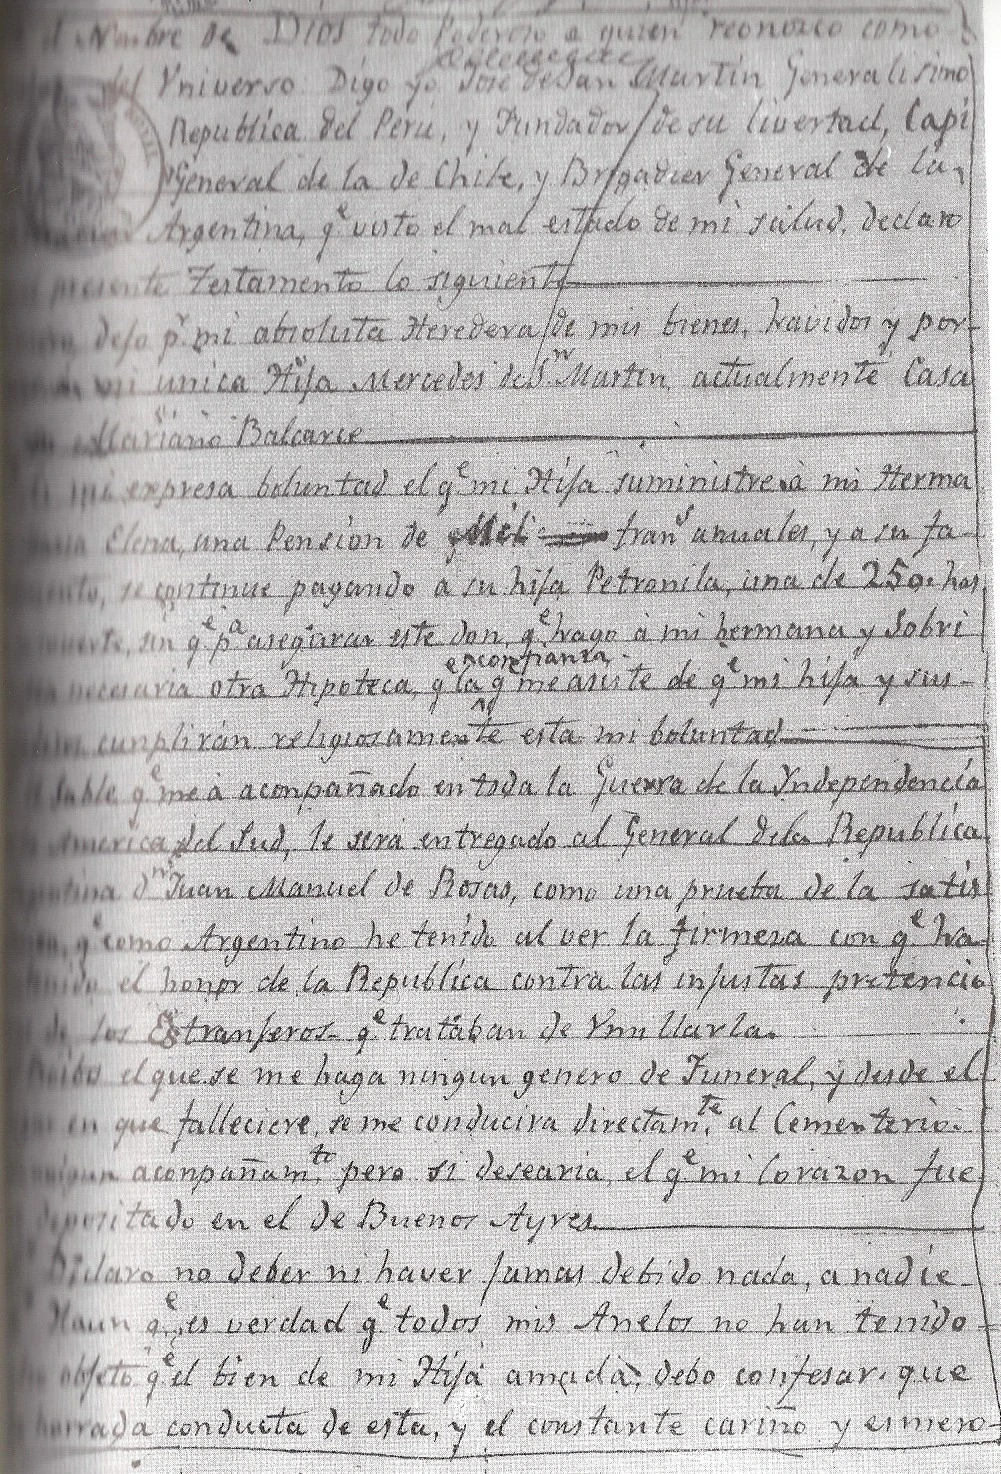 Nombre de Dios todo Poderoso a quien reconozco como
del Yniverso Digo yo José de San Martin Generalisimo
Republica del Peru, y Fundador de su livertad, Capi
General de la de Chile, y Brigadier General de la
Argentina, qᵉ visto el mal estado de mi salud, declaro
presente Testamento lo siguiente
dejo pʳ mi absoluta Heredera de mis bienes, havidos y por
mi unica Hija Mercedes de Sⁿ Martin, actualmente Casa
Mariano Balcarce
mi expresa boluntad el qᵉ mi Hija suministre à mi Herma
Elena, una Pension de Mil franˢ anuales, y a su fa-
se continue pagando a su hija Petronila, una de 250. has
muerte, sin qᵉ pᵃ asegurar este don, qᵉ hago à mi hermana y Sobri
necesaria otra Hipoteca, q la confianza qᵉ me asiste de qᵉ mi hija y sus-
cunplirán religiosamente esta mi boluntad
Sable qᵉ me à aconpañado en toda la Guerra de la Yndependencia
America del Sud, le será entregado al General dela Republica
Dⁿ Juan Manuel de Rosas, como una prueba de la satis
qᵉ como Argentino he tenido al ver la firmeza con qᵉ ha
el honor de la Republica contra las injustas pretencio
de los Extranjeros qᵉ tratában de Ymillarla.
el que se me haga ningun genero de Funeral, y desde el
en que falleciere, se me conducira directamᵗᵉ al Cementerio
aconpañamᵗᵒ pero si desearia, el qᵉ mi Corazon fue
depositado en el de Buenos Ayres
Declaro no deber ni haver jamas debido nada, a nadie
Haun qᵉ es verdad qᵉ todos mis Anelos no han tenido
objeto qᵉ el bien de mi Hija amada, debo confesar, que
honrrada conducta de esta, y el constante cariño y esmero